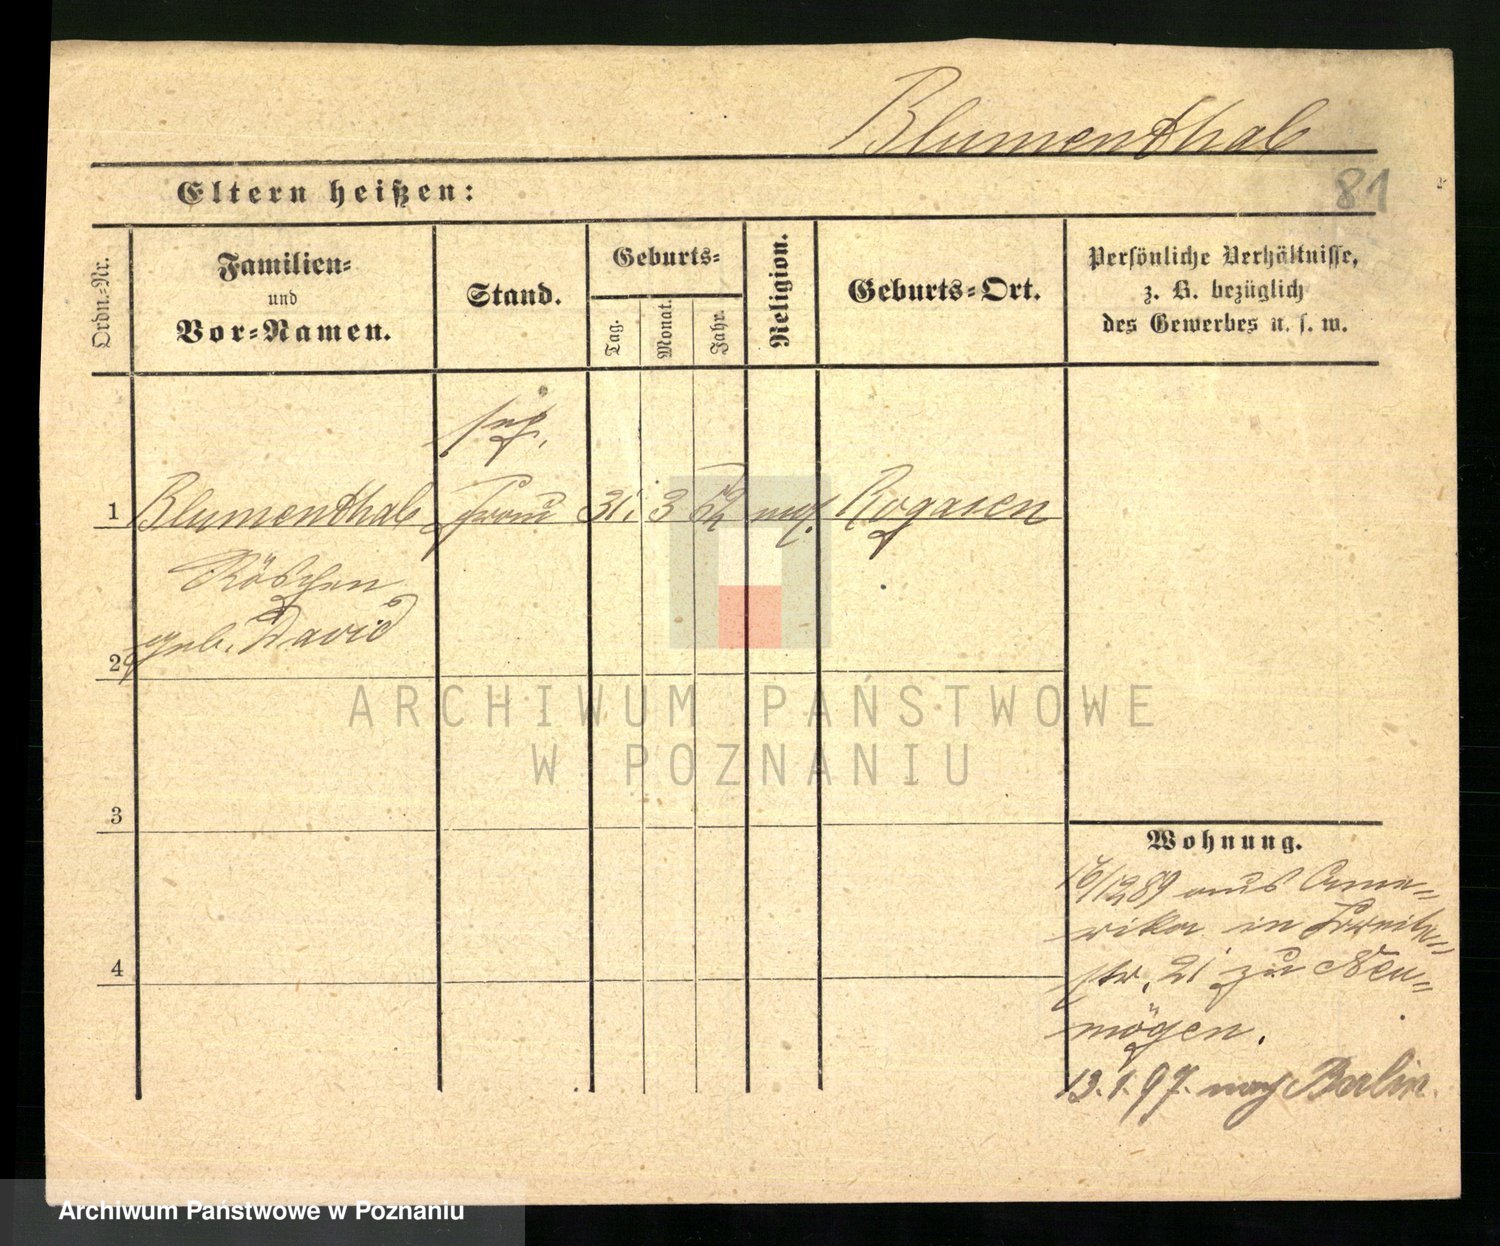 Blumenthal
Eltern heißen:
81
Ordn.-Nr.
Familien-
und
Vor-Namen.
Stand.
Geburts-
Tag.
Monat.
Jahr.
Religion.
Geburts-Ort.
Persönliche Verhältnisse,
z. B. bezüglich
des Gewerbes u. s. w.
1
Blumenthal
Frau
31. 3 52
mos.
Rogasen
Röschen
geb. David
2
3
4
Wohnung.
16/12 89 aus Ame-
rika in Breite-
str. 21 zu
mögen.
13.1.97. nach Berlin.
ARCHIWUM PAŃSTWOWE
W POZNANIU
Archiwum Państwowe w Poznaniu